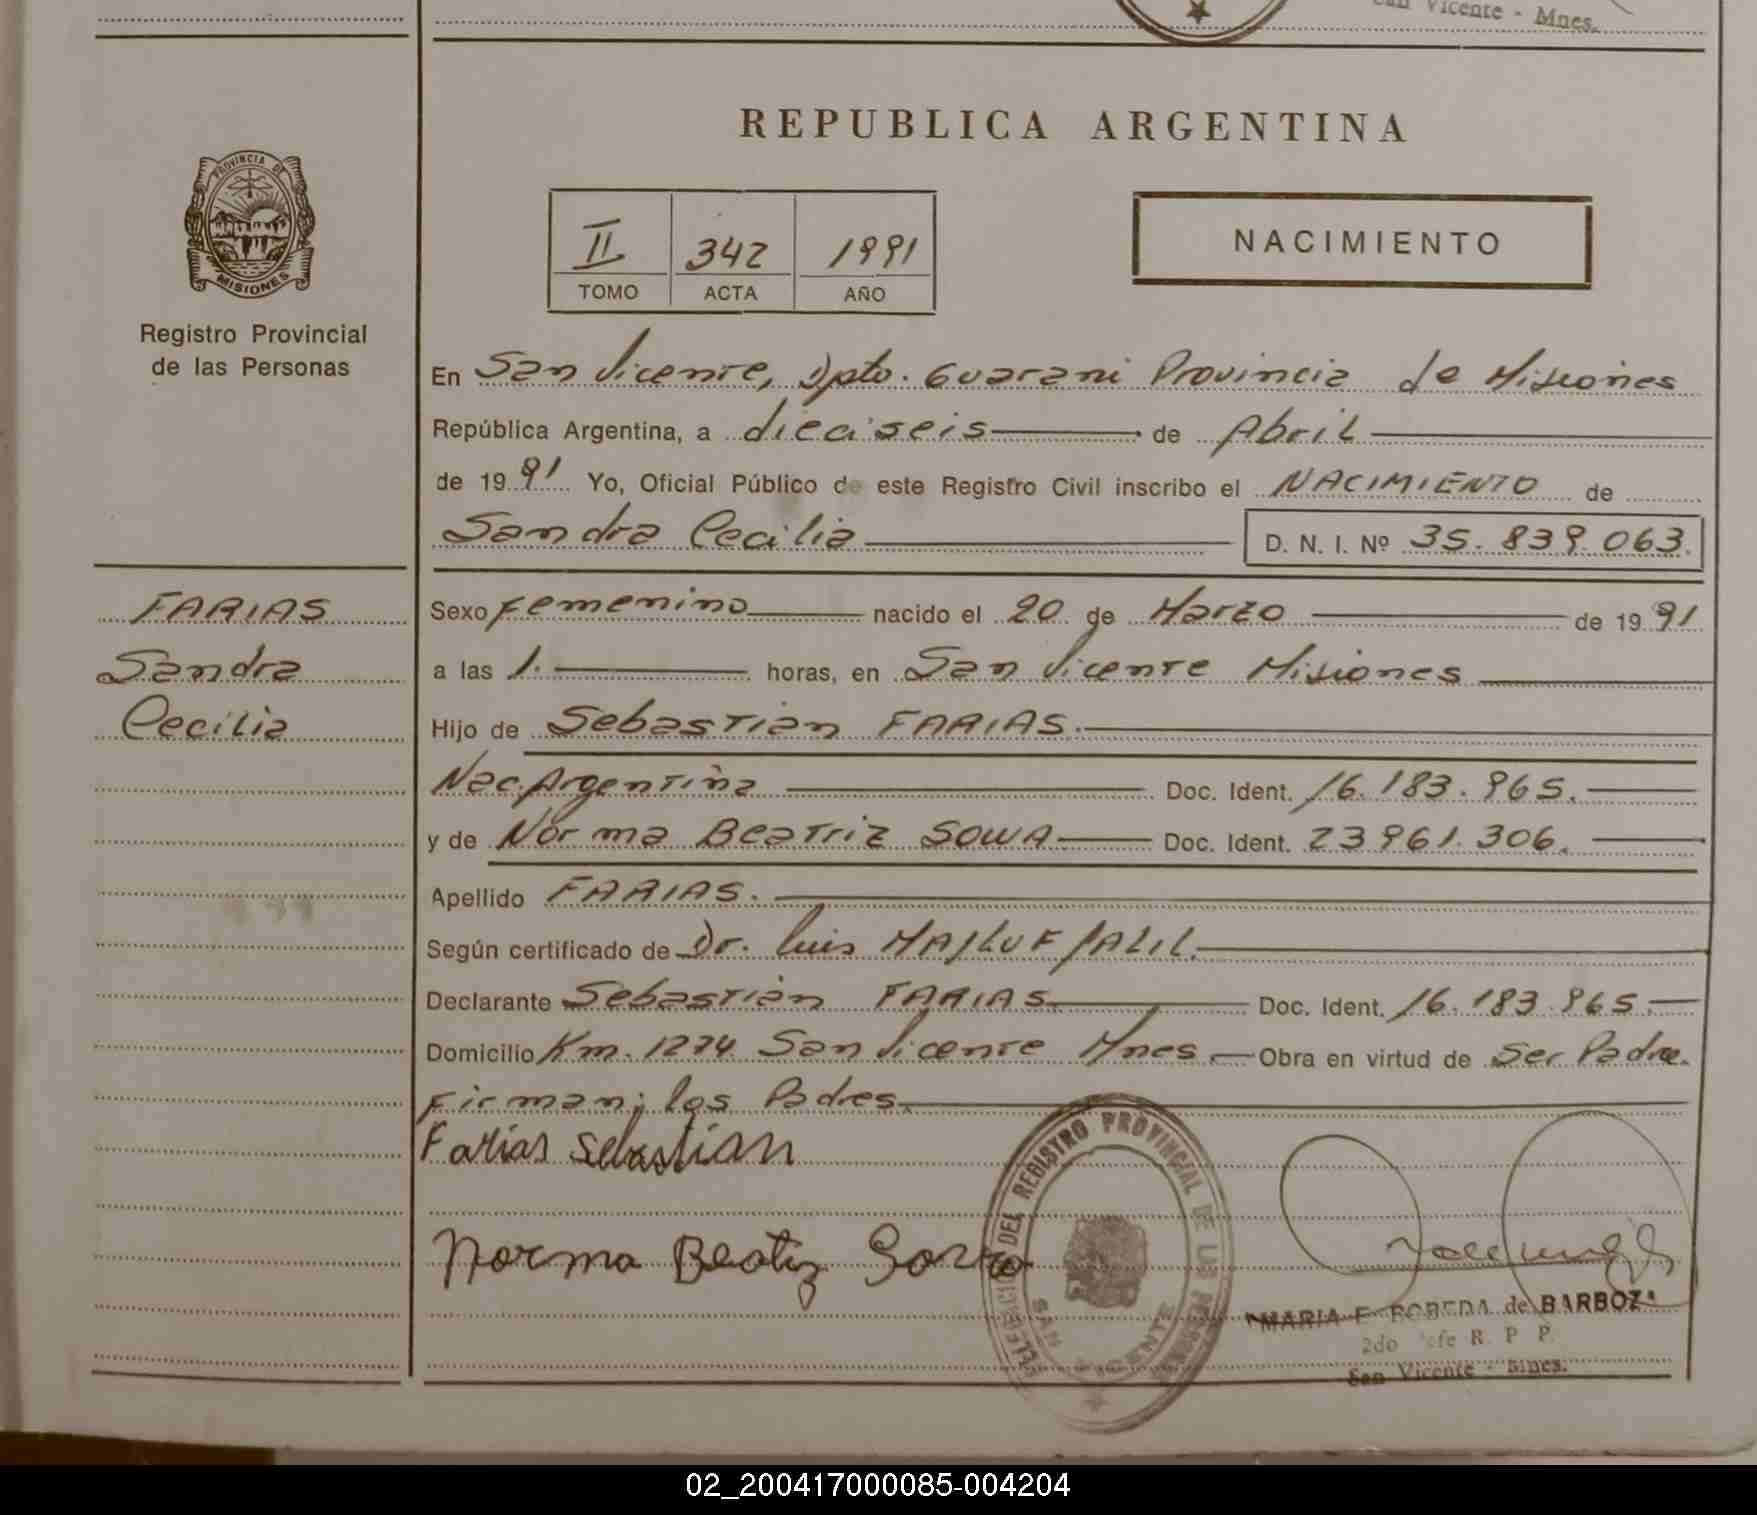 San Vicente - Mnes.
REPUBLICA ARGENTINA
PROVINCIA DE
MISIONES
Registro Provincial
de las Personas
II 342 1991
TOMO ACTA AÑO
NACIMIENTO
En San Vicente, Dpto. Guarani Provincia de Misiones
República Argentina, a dieciseis de Abril
de 1991 Yo, Oficial Público de este Registro Civil inscribo el NACIMIENTO de
Sandra Cecilia D. N. I. Nº 35.839.063.
FARIAS
Sandra
Cecilia
Sexo Femenino nacido el 20 de Marzo de 1991
a las 1. horas, en San Vicente Misiones
Hijo de Sebastian FARIAS.
Nac. Argentina Doc. Ident. 16.183.965.
y de Norma Beatriz SOWA Doc. Ident. 23961.306.
Apellido FARIAS.
Según certificado de Dr. Luis MAJLUF JALIL.
Declarante Sebastian FARIAS. Doc. Ident. 16.183.965.
Domicilio Km. 1274 San Vicente Mnes. Obra en virtud de Ser Padre.
Firman; los Padres.
Farias Sebastian
Norma Beatiz Sowa
DEL REGISTRO PROVINCIAL DE LAS PERSONAS
SAN VICENTE
MARIA E. de BARBOZA
2do Jefe R. P. P.
San Vicente - Mnes.
02_200417000085-004204